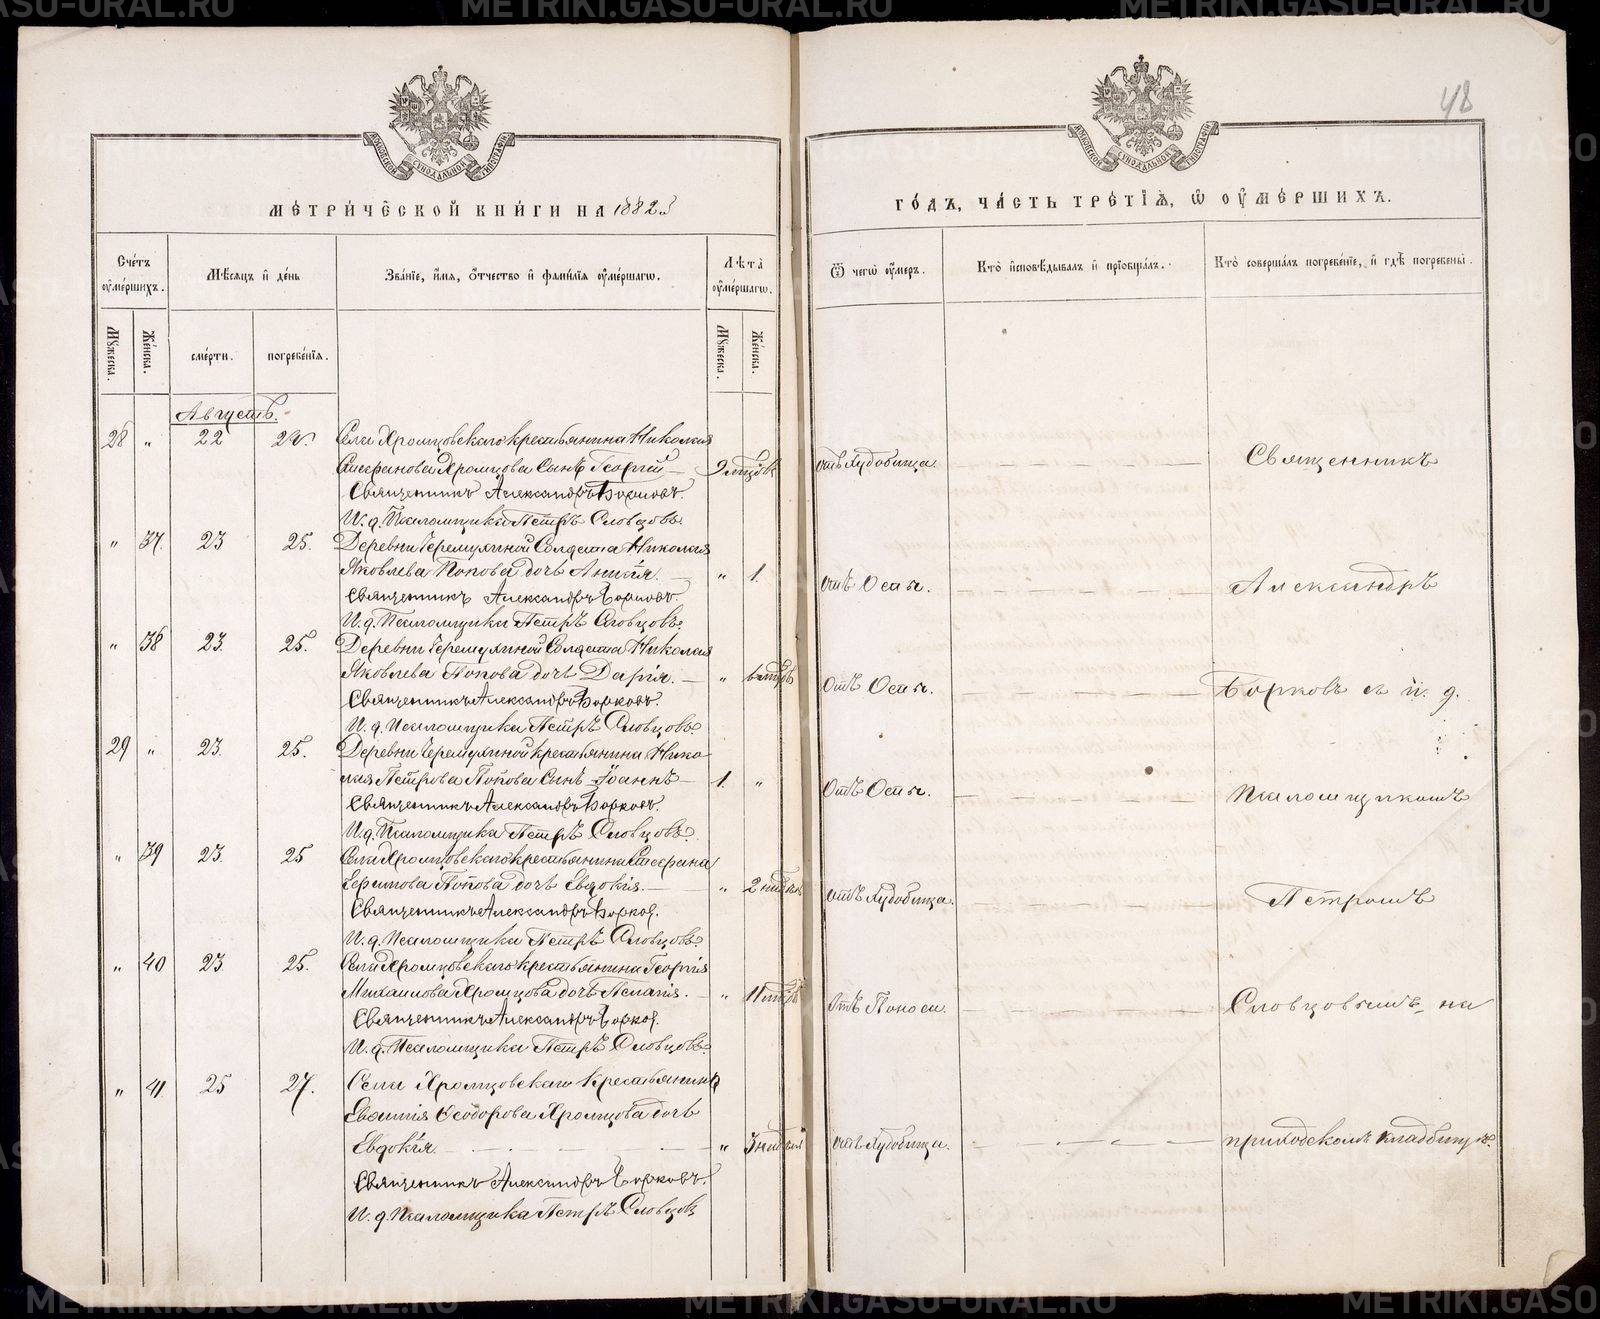 METRIKI.GASU-URAL.RU
48
МЕТРИЧЕСКОЙ КНИГИ НА 1882й
ГОДЪ, ЧАСТЬ ТРЕТІЯ, Ѡ ОУМЕРШИХЪ.
Счетъ оумершихъ.
Мѣсяцъ и день
Званіе, имя, отчество и фамилія оумершагѡ.
Лѣта оумершагѡ.
Ѿ чегѡ оумеръ.
Кто исповѣдывалъ и пріобщалъ.
Кто совершалъ погребеніе, и гдѣ погребены.
Мужеска.
Женска.
смерти.
погребенія.
Мужеска.
Женска.
Августъ.
28 " 22 24. Села Хромцовскаго крестьянина Николая
Стефанова Хромцова Сынъ Георгій — 9 мцовъ отъ Худобища. Священникъ
Священникъ Александръ Борковъ.
И. д. Псаломщика Петръ Словцовъ.
" 37. 23 25. Деревни Черемухиной Солдата Николая
Яковлева Попова дочь Анисія. — " 1. отъ Оспы. Александръ
Священникъ Александръ Борковъ.
И. д. Псаломщика Петръ Словцовъ.
" 38 23. 25. Деревни Черемухиной Солдата Николая
Яковлева Попова дочь Дарія. — " Отъ Оспы. Борковъ съ и. д.
Священникъ Александръ Борковъ.
И. д. Псаломщика Петръ Словцовъ.
29 " 23. 25. Деревни Черемухиной крестьянина Нико-
лая Петрова Попова Сынъ Іоаннъ — 1. " Отъ Оспы. Псаломщикомъ
Священникъ Александръ Борковъ
И. д. Псаломщика Петръ Словцовъ.
" 39 23. 25 Села Хромцовскаго крестьянина Стефана
Ефимова Попова дочь Евдокія. — " 2 отъ Худобища. Петромъ
Священникъ Александръ Борковъ.
И. д. Псаломщика Петръ Словцовъ.
" 40 23. 25. Села Хромцовскаго крестьянина Георгія
Михаилова Хромцова дочь Пелагія. — " 11 Отъ Поноса. Словцовымъ, на
Священникъ Александръ Борковъ.
И. д. Псаломщика Петръ Словцовъ.
" 41 25 27. Села Хромцовскаго крестьянина
Евѳимія Ѳеодорова Хромцова дочь
Евдокія. — " 3 отъ Худобища. приходскомъ кладбищѣ.
Священникъ Александръ Борковъ.
И. д. Псаломщика Петръ Словцовъ
METRIKI.GASU-URAL.RU